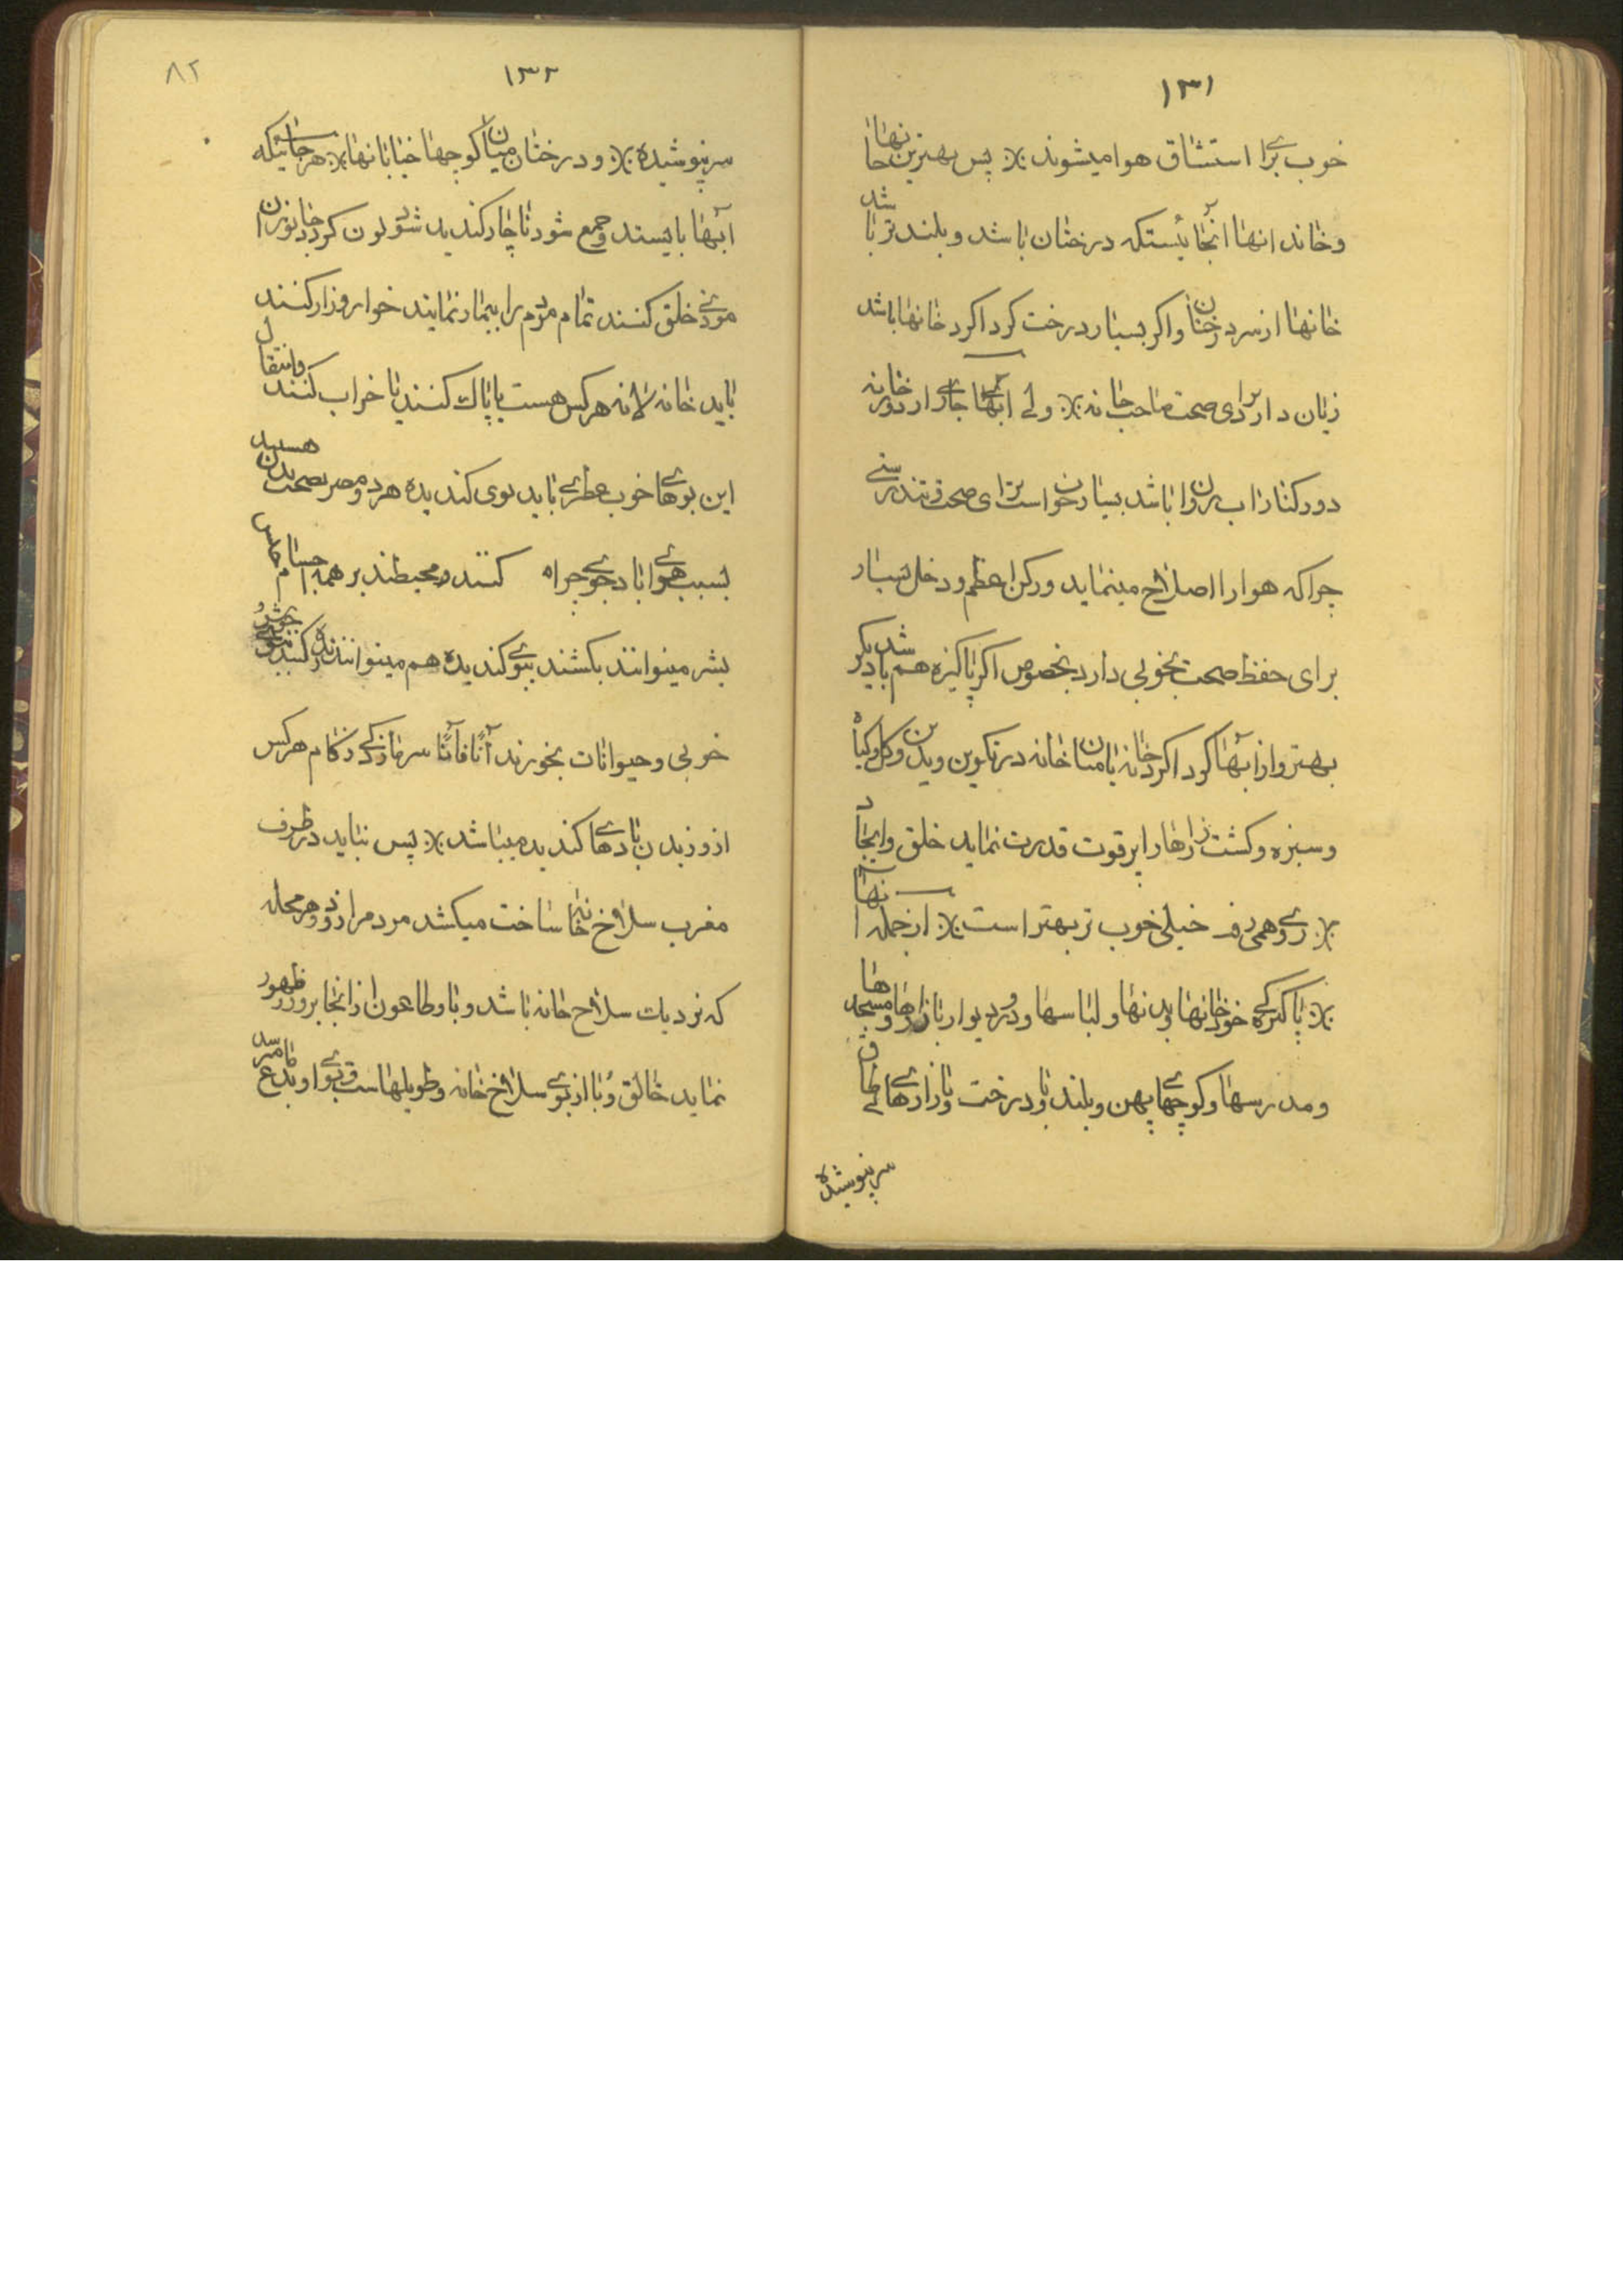 ۱۳۱
خوب برای استنشاق هوا میشوند ٪ پس بهترین جانهاا
وخاند انهاا انجآئیستکه درختان باشد و بلند تر باشد
خانهاا از سر درختان واکر بسیار درخت کرداکرد خانها باشد
زیان دارد برای صحت صاحب خانه ٪ ولے ابهآے جارے ار دور خانه
دور کنار اب روان باشد بسیار خوانست برای صحت تندرستے
چرا که هوارا اصلاح مینماید ورکن اعظم و دخل بسیار
برای حفظ صحت بخوبی دارد بخصوص اکر پاکیزه هم باشد دیکر
بهتر واز ابهآ کرداکرد خانه یا میان خانه در تکوین وبدن وکل وکیاه
وسبزه وکشت زارهارا پر قوت قدرت نماید خلق وایجاد
٪ رے وهمی رف خیلی خوب تر بهتر است ٪ از جمله انها
٪ پاکیزکے خود خانها وبدنها و لباسها ودر ودیوار بازارها ومسجد ها
و مدرسها و کوچهاے پهن و بلند با ودرخت وبازارهاے طاق
سر پنوشیده
۱۳۲
۸۲
سر پنوشیده ٪ و درختان میان کوچها خیابانها ٪ هر جائیکه
ابهآ بایستد وجمع شود ناچار کندیده شود لون کردد جانوران
موذے خلق کنند تمام مردم را بیمار نمایند خوار وزار کنند
باید خانه لانه هرکس هست یا پاک کنند یا خراب کنند وانتقال
این بوهاے خوب عطرے باید بوی کندیده هر دو مضر بصحت بدن هستید
بسبب هواے بادجوے چراه کنند ومحیطند بر همه اجسام
بشر میتوانند بکشند ببوے کندیده هم میتوانند زنده کنند
خوبی وحیوانات بخورند آنًا فآنًا سرمازدکے زکام هرکس
از وزیدن بادهاے کندیده میباشد ٪ پس نباید در طرف
مغرب سلاخ خانها ساخت میکشد مردمرا زود وهر محله
که نزدیک سلاخ خانه باشد وبا وطاعون از انجا بروز ظهور
نماید خالق وُبا از بوے سلاخ خانه وطویلهاست